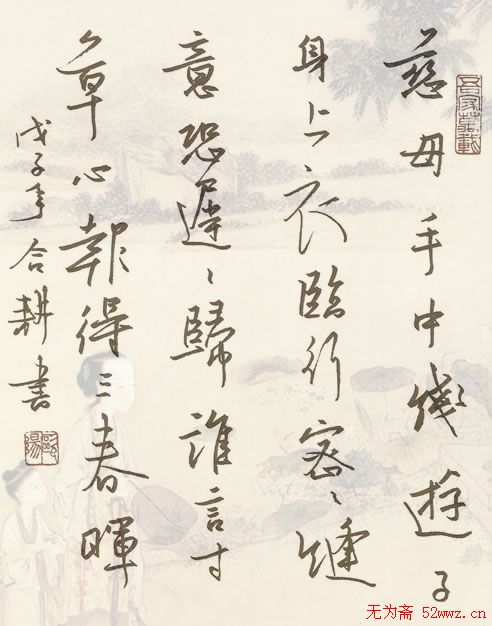 慈母手中綫遊子
身上衣臨行密〻縫
意恐遲〻歸誰言寸
草心報得三春暉
戊子年合耕書
无为斋 52wwz.cn